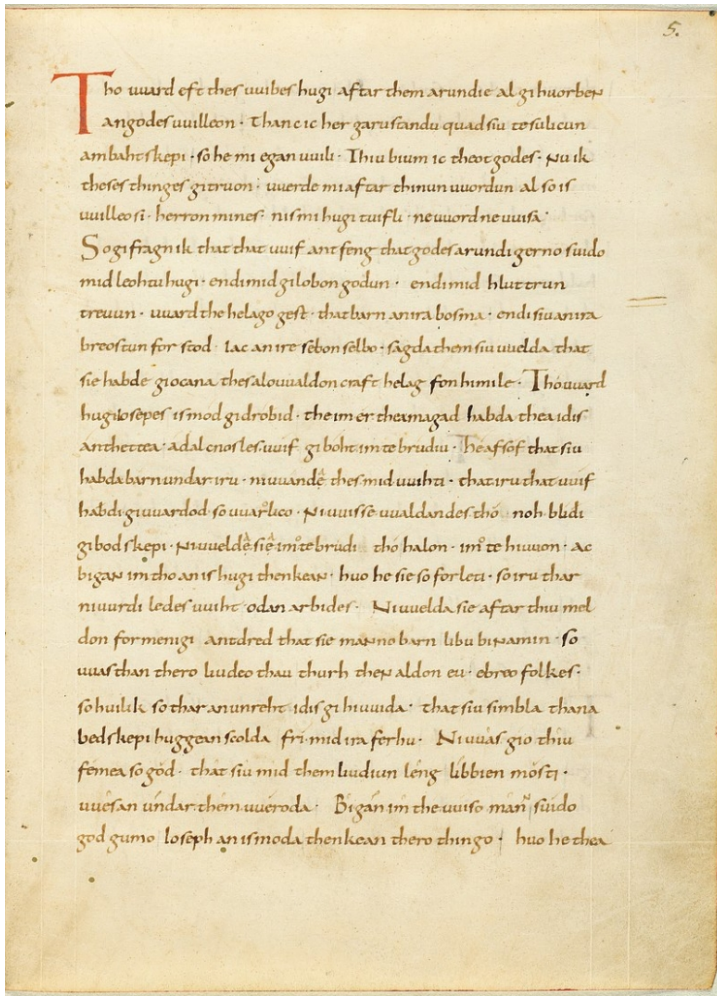 5.
Tho uuard eft thes uuibes hugi aftar them arundie al gihuorben
an godes uuilleon · Than c ic her garu standu quad siu te sulicun
ambahtskepi · so he mi egan uuili · Thiu bium ic theotgodes · Nu ik
theses thinges gitruon · uuerde mi aftar thinun uuordun al so is
uuilleo si · herron mines · nis mi hugi tuifli · ne uuord ne uuisa ·
So gifragn ik that that uuif antfeng that godes arundi gerno suido
mid leohtu hugi · endi mid gilobon godun · endi mid hluttrun
treuun · uuard the helago gest · that barn an ira bosma · endi siu an ira
breostun forstod iac an ire sebon selbo · sagda them siu uuelda that
sie habde giocana thes alouualdon craft helag fon himile · Tho uuard
hugi iosepes is mod gidrobid · the im er thea magad habda thea idis
anthettea · adalcnosles uuif giboht im te brudiu · He afsof that siu
habda barn undar iru · ni uuande thes mid uuihti · that iru that uuif
habdi giuuardod so uuarlico · Ni uuisse uualdandes tho noh blidi
gibodskepi · Ni uuelde sie imo te brudi tho halon · imo te hiuuon · Ac
bigan im tho an is hugi thenkean · huo he sie so forleti · so iru thar
ni uurdi ledes uuiht odan arbides · Ni uuelda sie aftar thiu mel
don for menigi antdred that sie manno barn libu binamin · so
uuas than thero liudeo thau thurh then aldon eu · ebreo folkes ·
so huilik so thar an unreht idis gihiuuida · that siu simbla thana
bedskepi buggean scolda fri mid ira ferhu · Ni uuas gio thiu
femea so gód · that siu mid them liudiun leng libbien mosti ·
uuesan undar them uueroda · Bigan im the uuiso mann suido
god gumo Ioseph an is moda thenkean thero thingo · huo he thea